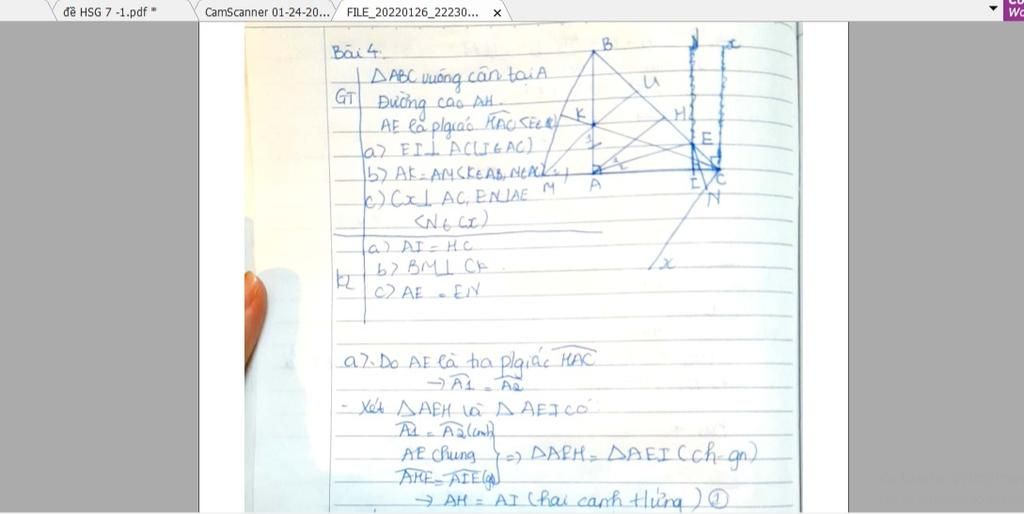 đề HSG 7 -1.pdf * CamScanner 01-24-20... FILE_20220126_22230... ×
Bài 4.
GT
ΔABC vuông cân tại A
Đường cao AH.
AE là p/giác HAC
a) EI⊥ AC(I∈AC)
b) AK=AM(K∈AB,
c) Cx⊥ AC, EN⊥AE
(N∈Cx)
KL
a) AI = HC
b) BM⊥ CK
c) AE = EN
B
U
K
H
E
M
A
I
C
N
x
x
a). Do AE là tia p/giác HAC
→ A1 = A2
- Xét ΔAEH và ΔAEI có
A1 = A2 (cmt)
AE chung
AHE = AIE
=> ΔAEH = ΔAEI (ch-gn)
→ AH = AI (hai cạnh t/ứng) ①